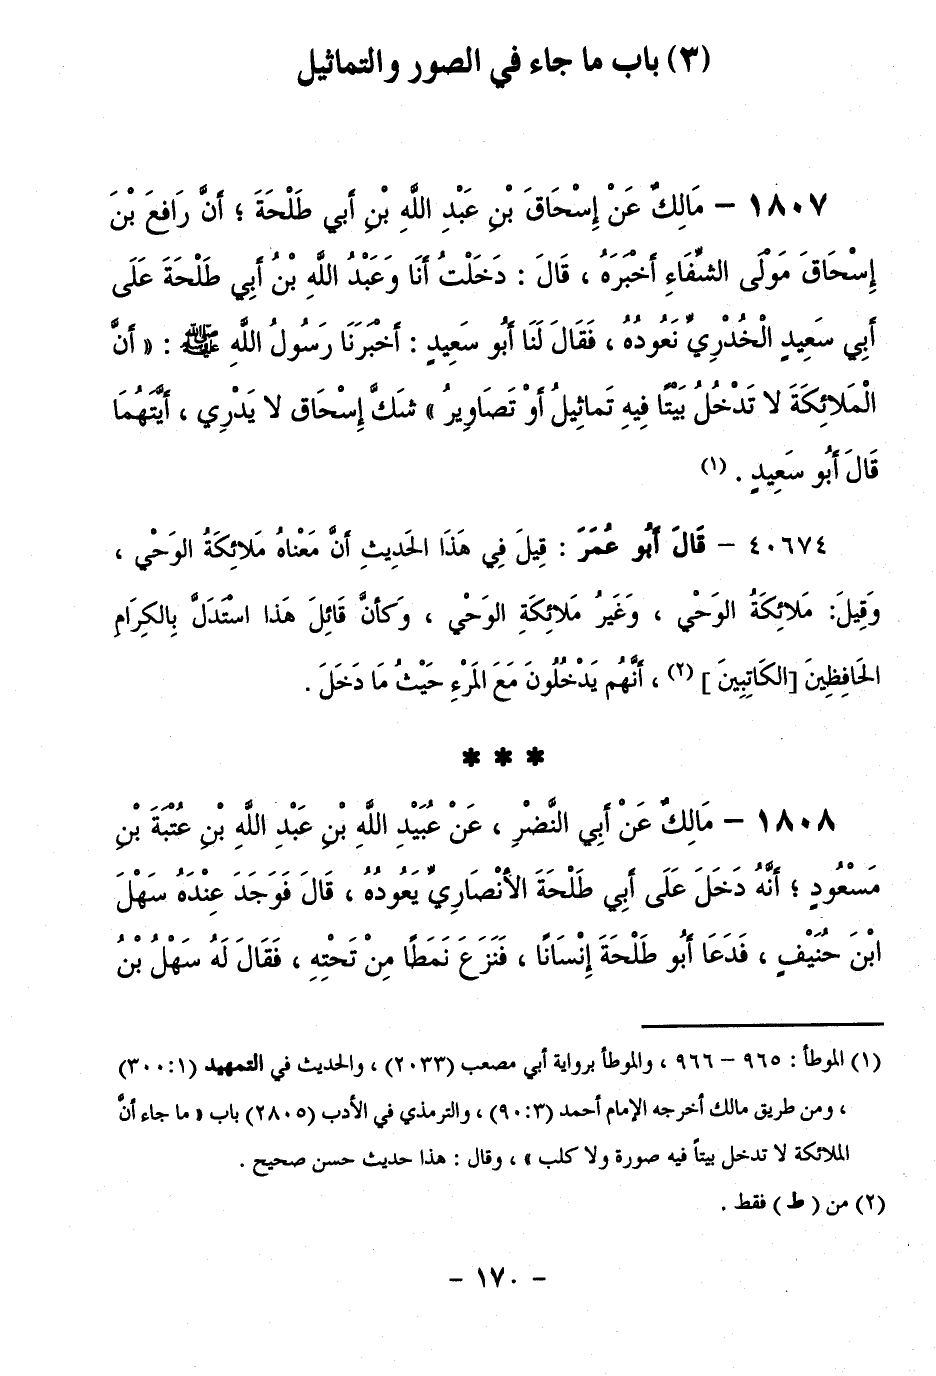 (٣) باب ما جاء في الصور والتماثيل
١٨٠٧ – مَالِكٌ عَنْ إِسْحَاقَ بْنِ عَبْدِ اللَّهِ بْنِ أَبي طَلْحَةَ ؛ أَنَّ رَافِعَ بْنَ
إِسْحَاقَ مَوْلَى الشِّفَاءِ أَخْبَرَهُ ، قَالَ : دَخَلْتُ أَنَا وَعَبْدُ اللَّهِ بْنُ أَبِي طَلْحَةَ عَلَى
أَبِي سَعِيدٍ الْخُدْرِيِّ نَعُودُهُ ، فَقَالَ لَنَا أَبُو سَعِيدٍ : أَخْبَرَنَا رَسُولُ اللَّهِ ﷺ : « أَنَّ
الْمَلائِكَةَ لا تَدْخُلُ بَيْتًا فِيهِ تَماثِيلُ أَوْ تَصَاوِيرُ » شَكَّ إِسْحَاق لا يَدْرِي ، أَيَّتَهُمَا
قَالَ أَبُو سَعِيدٍ . (١)
٤٠٦٧٤ – قَالَ أَبُو عُمَرَ : قِيلَ فِي هَذَا الحَدِيثِ أَنَّ مَعْنَاهُ مَلائِكَةُ الوَحْي ،
وَقِيلَ: مَلائِكَةُ الوَحْي ، وَغَيرُ مَلائِكَةِ الوَحْي ، وَكَأنَّ قَائِلَ هَذا اسْتَدَلَّ بِالكِرَامِ
الحَافِظِينَ [الكَاتِبِينَ ] (٢) ، أَنَّهُم يَدْخُلُونَ مَعَ المَرْءِ حَيْثُ مَا دَخَلَ .
* * *
١٨٠٨ – مَالِكٌ عَنْ أَبِي النَّضْرِ ، عَنْ عُبَيْدِ اللَّهِ بْنِ عَبْدِ اللَّهِ بْنِ عُتْبَةَ بْنِ
مَسْعُودٍ ؛ أَنَّهُ دَخَلَ عَلَى أَبِي طَلْحَةَ الأَنْصَارِيِّ يَعُودُهُ ، قَالَ فَوَجَدَ عِنْدَهُ سَهْلَ
ابْنَ حُنَيْفٍ ، فَدَعَا أَبُو طَلْحَةَ إِنْسَانًا ، فَنَزَعَ نَمَطًا مِنْ تَحْتِهِ ، فَقَالَ لَهُ سَهْلُ بْنُ
(١) الموطأ : ٩٦٥ – ٩٦٦ ، والموطأ برواية أبي مصعب (٢٠٣٣) ، والحديث في التمهيد (١ :٣٠٠)
، ومن طريق مالك أخرجه الإمام أحمد (٣ :٩٠) ، والترمذي في الأدب (٢٨٠٥) باب « ما جاء أنَّ
الملائكة لا تدخل بيتاً فيه صورة ولا كلب » ، وقال : هذا حديث حسن صحيح .
(٢) من ( ط ) فقط .
– ١٧٠ –